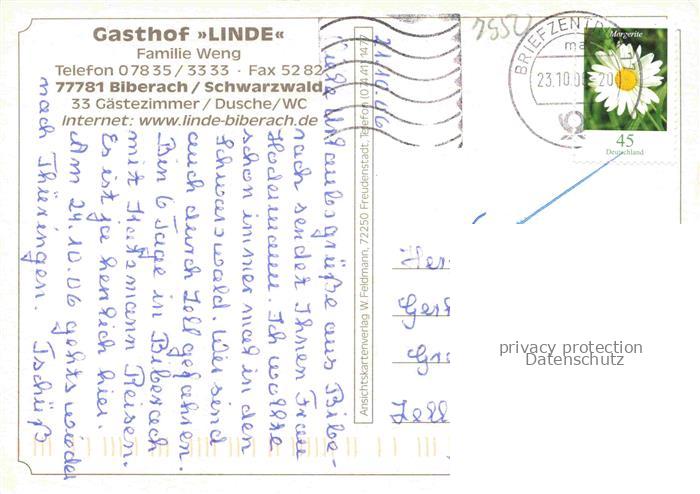 Gasthof »LINDE«
Familie Weng
Telefon 0 78 35 / 33 33 · Fax 52 82
77781 Biberach / Schwarzwald
33 Gästezimmer / Dusche/WC
Internet: www.linde-biberach.de
21.10.06
Liebe Urlaubsgrüße aus Bibe-
rach sendet Ihnen Frau
Hademann. Ich wollte
schon immer mal in den
Schwarzwald. Wir sind
auch durch Zell gefahren.
Bin 6 Tage in Biberach
mit Katzmann Reisen.
Es ist ja herrlich hier.
Am 24.10.06 gehts wieder
nach Thüringen. Tschüß
Ansichtskartenverlag W. Feldmann, 72250 Freudenstadt, Telefon (0 74 41) 14 77
BRIEFZENTR
77
23.10.06-20
Margerite
45
Deutschland
Her
Ger
Gr
Zell
privacy protection
Datenschutz